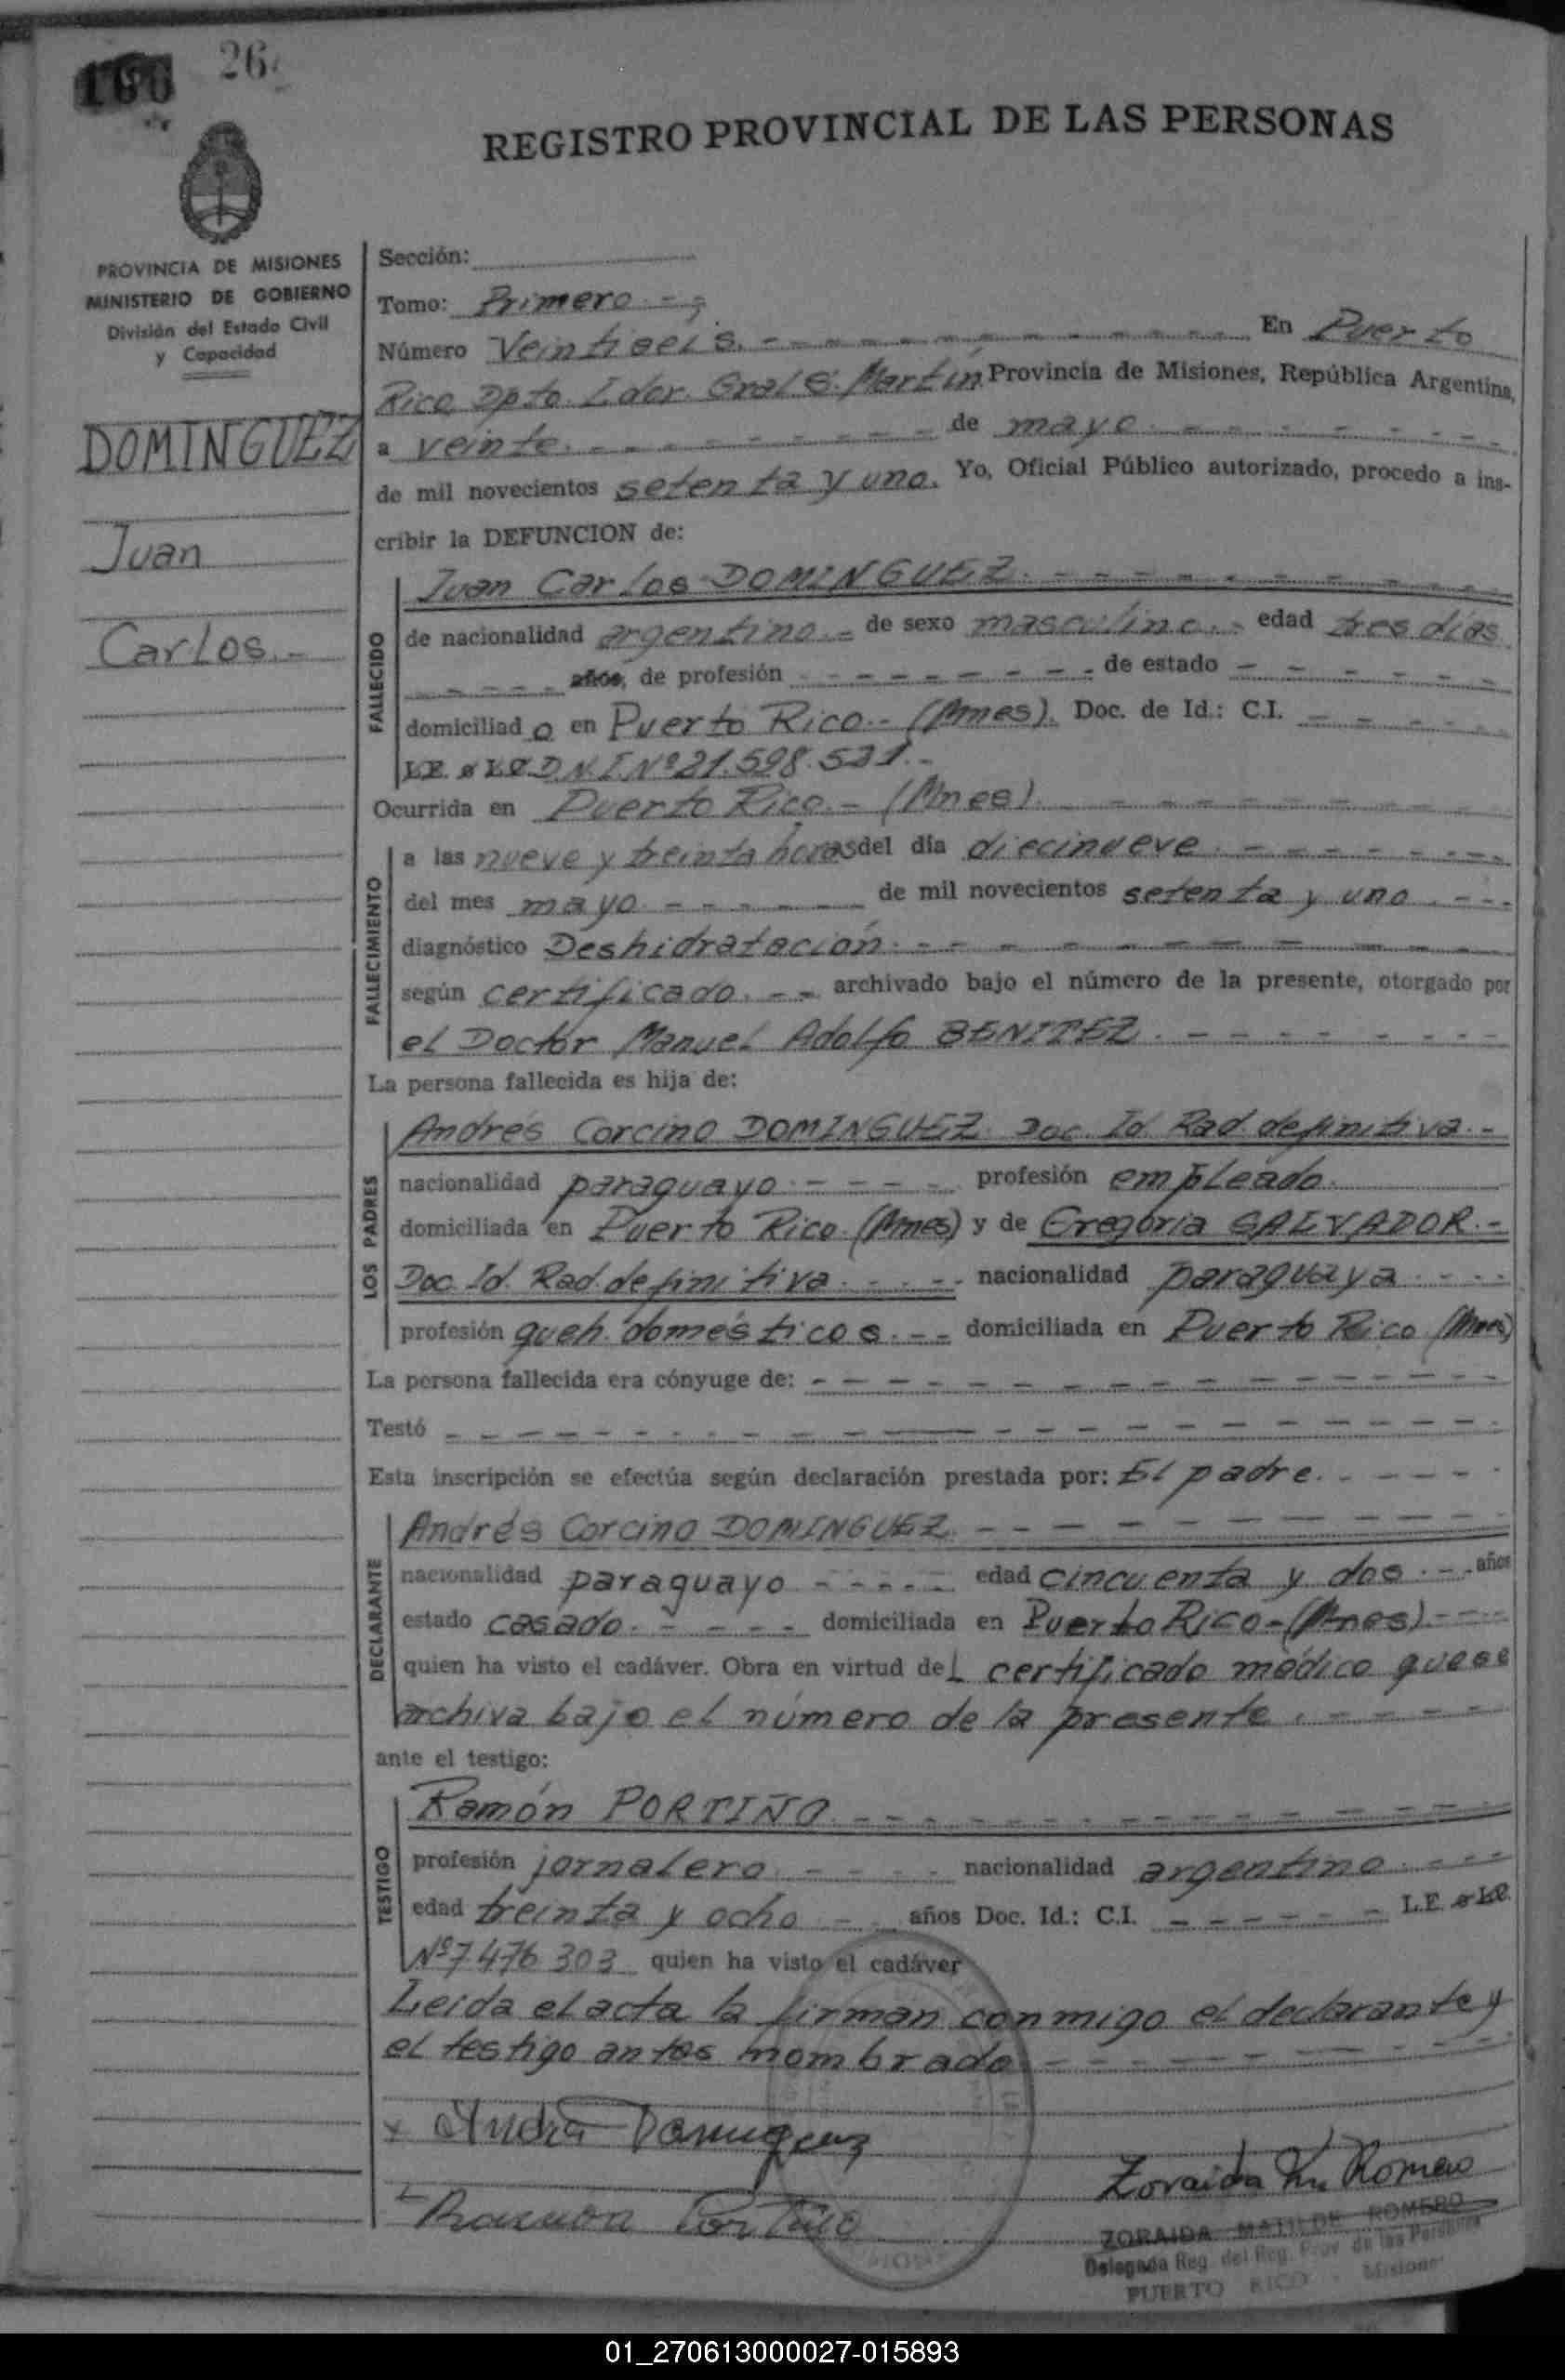 26
REGISTRO PROVINCIAL DE LAS PERSONAS
PROVINCIA DE MISIONES
MINISTERIO DE GOBIERNO
División del Estado Civil
y Capacidad
DOMINGUEZ
Juan
Carlos.-
Sección:
Tomo: Primero.-
Número Veintiseis. En Puerto
Rico Dpto. Ldor. Gral S. Martín Provincia de Misiones, República Argentina,
a veinte. de mayo.
de mil novecientos setenta y uno. Yo, Oficial Público autorizado, procedo a ins-
cribir la DEFUNCION de:
FALLECIDO
Juan Carlos DOMINGUEZ.
de nacionalidad argentino.- de sexo masculino.- edad tres días
años, de profesión de estado
domiciliado en Puerto Rico.- (Mnes). Doc. de Id.: C.I.
L.E. o L.C. D.N.I. Nº 21.598.531.-
Ocurrida en Puerto Rico.- (Mnes).
FALLECIMIENTO
a las nueve y treinta horas del día diecinueve.
del mes mayo. de mil novecientos setenta y uno.
diagnóstico Deshidratación.
según certificado. archivado bajo el número de la presente, otorgado por
el Doctor Manuel Adolfo BENITEZ.
La persona fallecida es hija de:
LOS PADRES
Andrés Corcino DOMINGUEZ Doc. Id. Rad. definitiva.-
nacionalidad paraguayo. profesión empleado.
domiciliada en Puerto Rico. (Mnes) y de Gregoria SALVADOR.-
Doc. Id. Rad. definitiva. nacionalidad paraguaya.
profesión queh. domésticos. domiciliada en Puerto Rico (Mnes)
La persona fallecida era cónyuge de:
Testó
Esta inscripción se efectúa según declaración prestada por: El padre.
DECLARANTE
Andrés Corcino DOMINGUEZ.
nacionalidad paraguayo edad cincuenta y dos. años
estado casado. domiciliada en Puerto Rico-(Mnes).
quien ha visto el cadáver. Obra en virtud del certificado médico que se
archiva bajo el número de la presente.
ante el testigo:
TESTIGO
Ramón PORTIÑO.
profesión jornalero. nacionalidad argentino.
edad treinta y ocho años Doc. Id.: C.I. L.E. o L.C.
Nº 7.476.303 quien ha visto el cadáver
Leida el acta la firman conmigo el declarante y
el testigo antes nombrado.
Zoraida M. Romero
ZORAIDA MATILDE ROMERO
Delegada Reg. del Reg. Prov. de las Personas
PUERTO RICO - Misiones
01_270613000027-015893